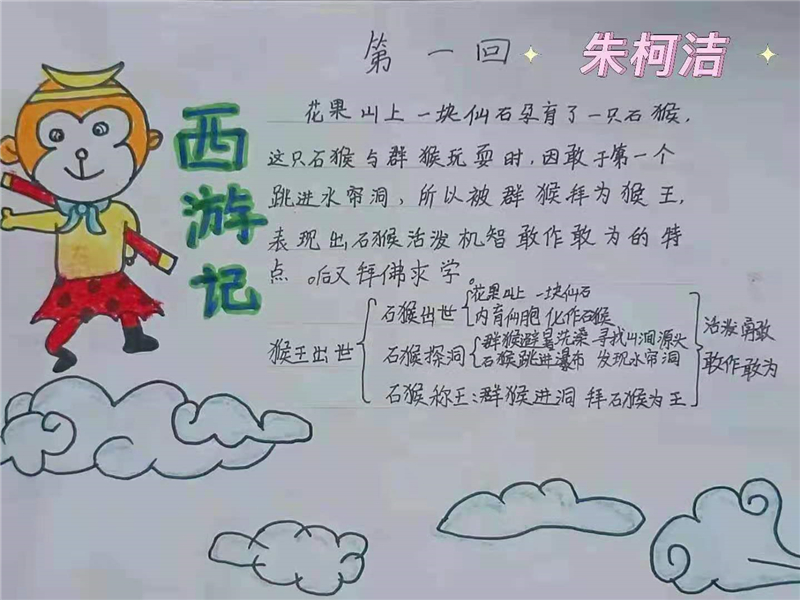 第一回
朱柯洁
西游记
花果山上一块仙石孕育了一只石猴,
这只石猴与群猴玩耍时,因敢于第一个
跳进水帘洞,所以被群猴拜为猴王,
表现出石猴活泼机智敢作敢为的特
点。后又拜佛求学。
猴王出世
石猴出世
花果山上 一块仙石
内育仙胞 化作石猴
石猴探洞
群猴避暑洗澡 寻找山涧源头
石猴跳进瀑布 发现水帘洞
石猴称王:群猴进洞 拜石猴为王
活泼勇敢
敢作敢为